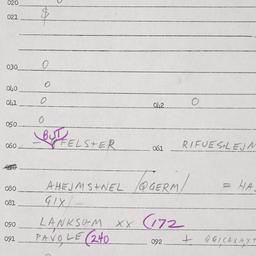 020
021 $
030 0
040 0
041 0 042 0
050 0
BUT
060 FELSTER 061 RIFUESLEJN
080 AHEJMSTNEL /QGERM/ = HA
081 GIX/
090 LANKSUM XX (172
091 PAVOLE (240 092 +